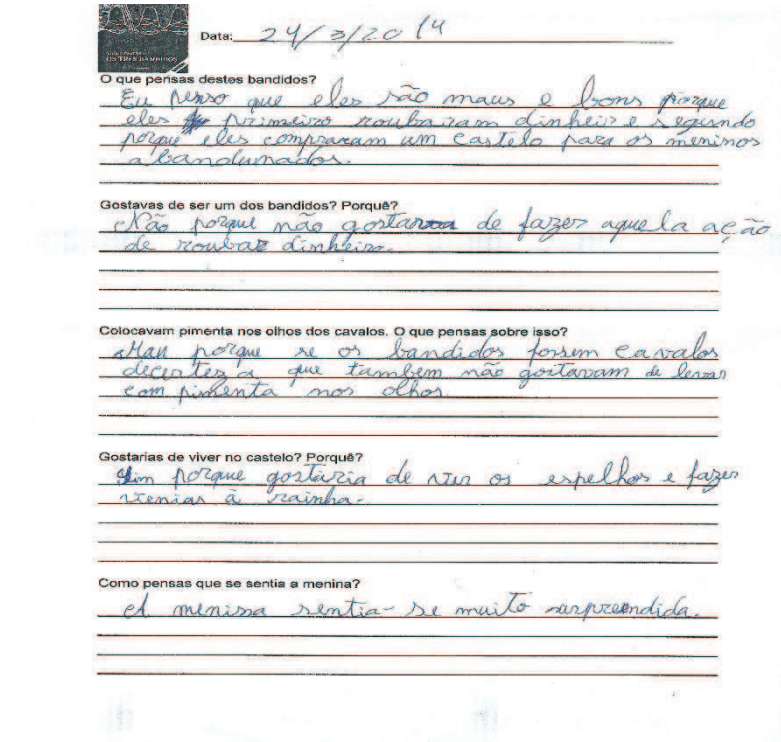 OS TRÊS BANDIDOS
Data: 24/3/2014
O que pensas destes bandidos?
Eu penso que eles são maus e bons porque
eles primeiro roubairam dinheir e segundo
porque eles compraram um castelo para os meninos
abandumados.
Gostavas de ser um dos bandidos? Porquê?
Não porque não gostava de fazer aquela ação
de roubar dinheiro.
Colocavam pimenta nos olhos dos cavalos. O que pensas sobre isso?
Mau porque se os bandidos fossem cavalos
decerteza que tambem não gostavam de levar
com pimenta nos olhos
Gostarias de viver no castelo? Porquê?
Sim porque gostaria de ver os espelhos e fazer
vénias à rainha.
Como pensas que se sentia a menina?
A menina sentia-se muito surpreendida.